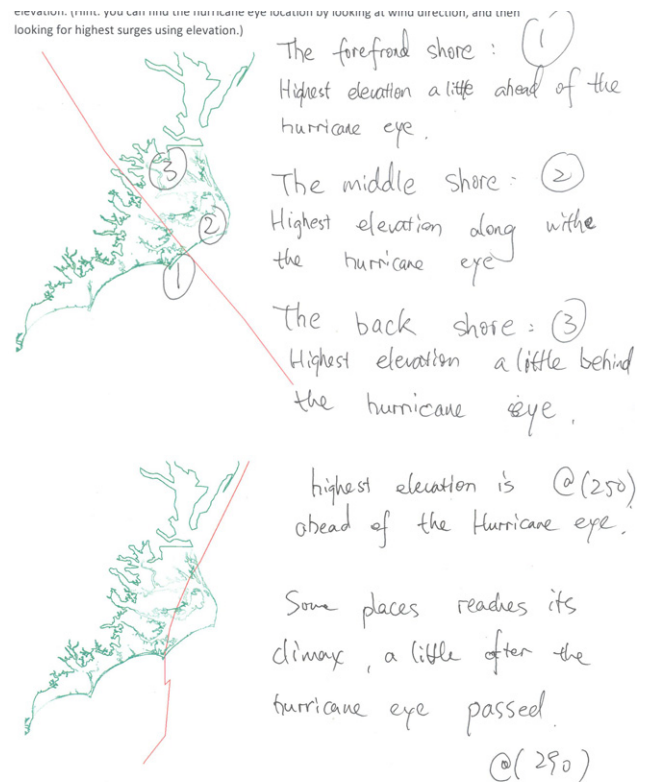 elevation. (Hint: you can find the hurricane eye location by looking at wind direction, and then
looking for highest surges using elevation.)
The forefroad shore : 1
Highest elevation a little ahead of the
hurricane eye.
The middle shore : 2
Highest elevation along withe
the hurricane eye
The back shore : 3
Highest elevation a little behind
the hurricane eye.
3
2
1
highest elevation is @(250)
ahead of the Hurricane eye.
Some places reaches its
climax, a little after the
hurricane eye passed.
@(290)